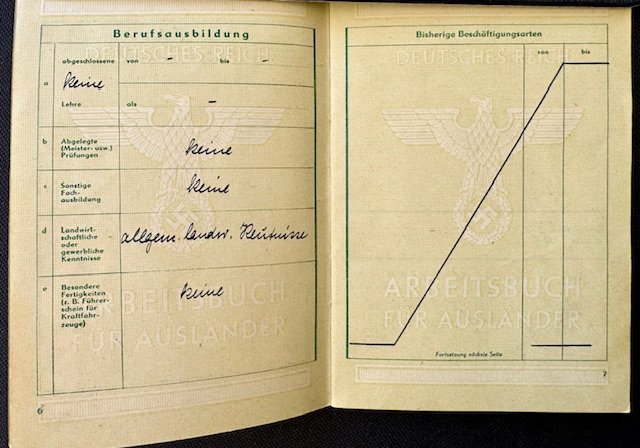 Berufsausbildung
DEUTSCHES REICH
abgeschlossene von - bis -
a keine
Lehre als -
b Abgelegte
(Meister- usw.) keine
Prüfungen
c Sonstige keine
Fach-
ausbildung
d Landwirt-
schaftliche allgem. landw. Keutnisse
oder
gewerbliche
Kenntnisse
e Besondere
Fertigkeiten keine
(z. B. Führer-
schein für
Kraftfahr-
zeuge)
ARBEITSBUCH
FÜR AUSLÄNDER
6
Bisherige Beschäftigungsarten
von bis
DEUTSCHES REICH
ARBEITSBUCH
FÜR AUSLÄNDER
Fortsetzung nächste Seite
7